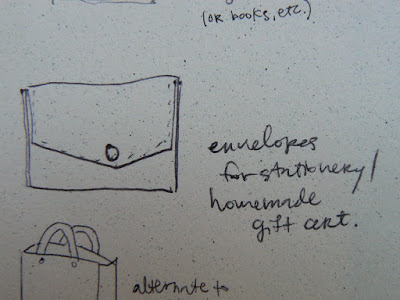 (or books, etc.)
envelopes
for stationery/
homemade
gift cert.
alternate to